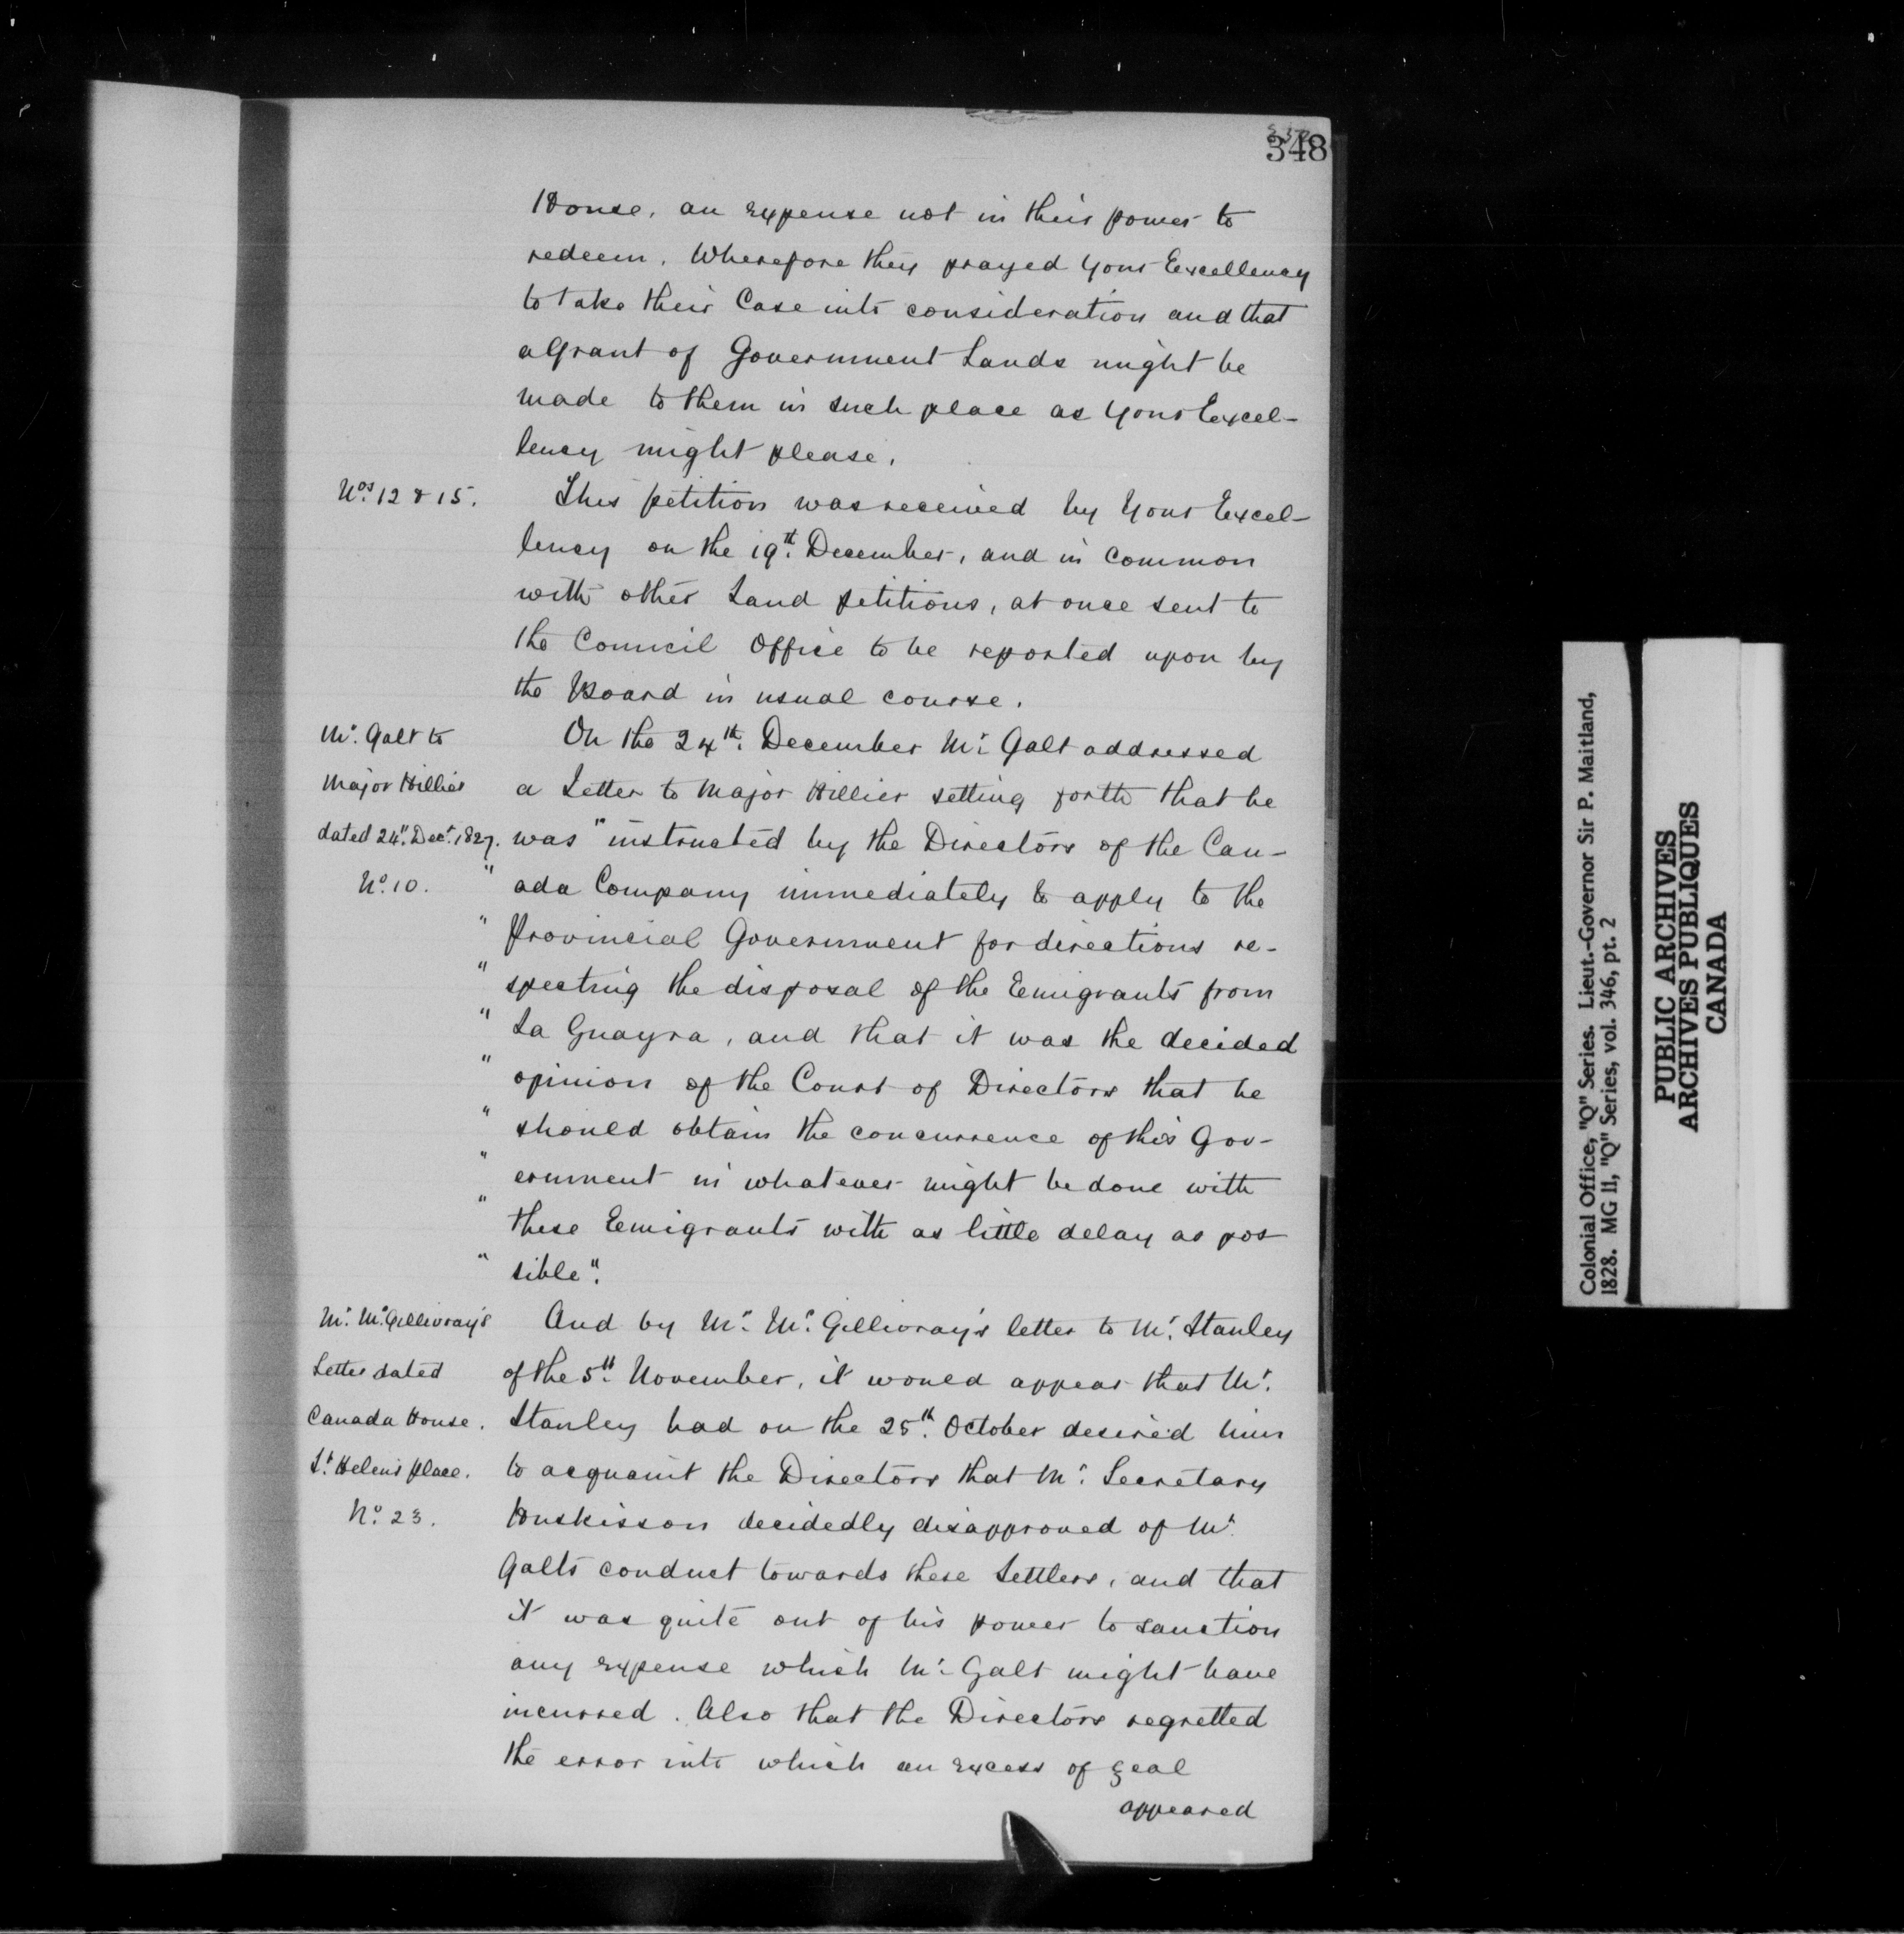 348
House, an expense not in their power to
redeem. Wherefore they prayed Your Excellency
to take their Case into consideration and that
a Grant of Government Lands might be
made to them in such place as Your Excel-
lency might please.
Nos. 12 & 15.
This petition was received by Your Excel-
lency on the 19th. December, and in common
with other Land petitions, at once sent to
the Council Office to be reported upon by
the Board in usual course.
Mr. Galt to
Major Hillier
dated 24th. Decr. 1827.
No. 10.
On the 24th. December Mr. Galt addressed
a Letter to Major Hillier setting forth that he
was "instructed by the Directors of the Can-
" ada Company immediately to apply to the
" Provincial Government for directions re-
" specting the disposal of the Emigrants from
" La Guayra, and that it was the decided
" opinion of the Court of Directors that he
" should obtain the concurrence of this Gov-
" ernment in whatever might be done with
" these Emigrants with as little delay as pos
" sible".
Mr. McGillivray's
Letter dated
Canada House.
St. Helen's place.
No. 23.
And by Mr. McGillivray's letter to Mr. Stanley
of the 5th. November, it would appear that Mr.
Stanley had on the 25th. October desired him
to acquaint the Directors that Mr. Secretary
Huskisson decidedly disapproved of Mr.
Galts conduct towards these Settlers, and that
it was quite out of his power to sanction
any expense which Mr. Galt might have
incurred. Also that the Directors regretted
the error into which an excess of zeal
appeared
Colonial Office, "Q" Series. Lieut.-Governor Sir P. Maitland,
1828. MG 11, "Q" Series, vol. 346, pt. 2
PUBLIC ARCHIVES
ARCHIVES PUBLIQUES
CANADA